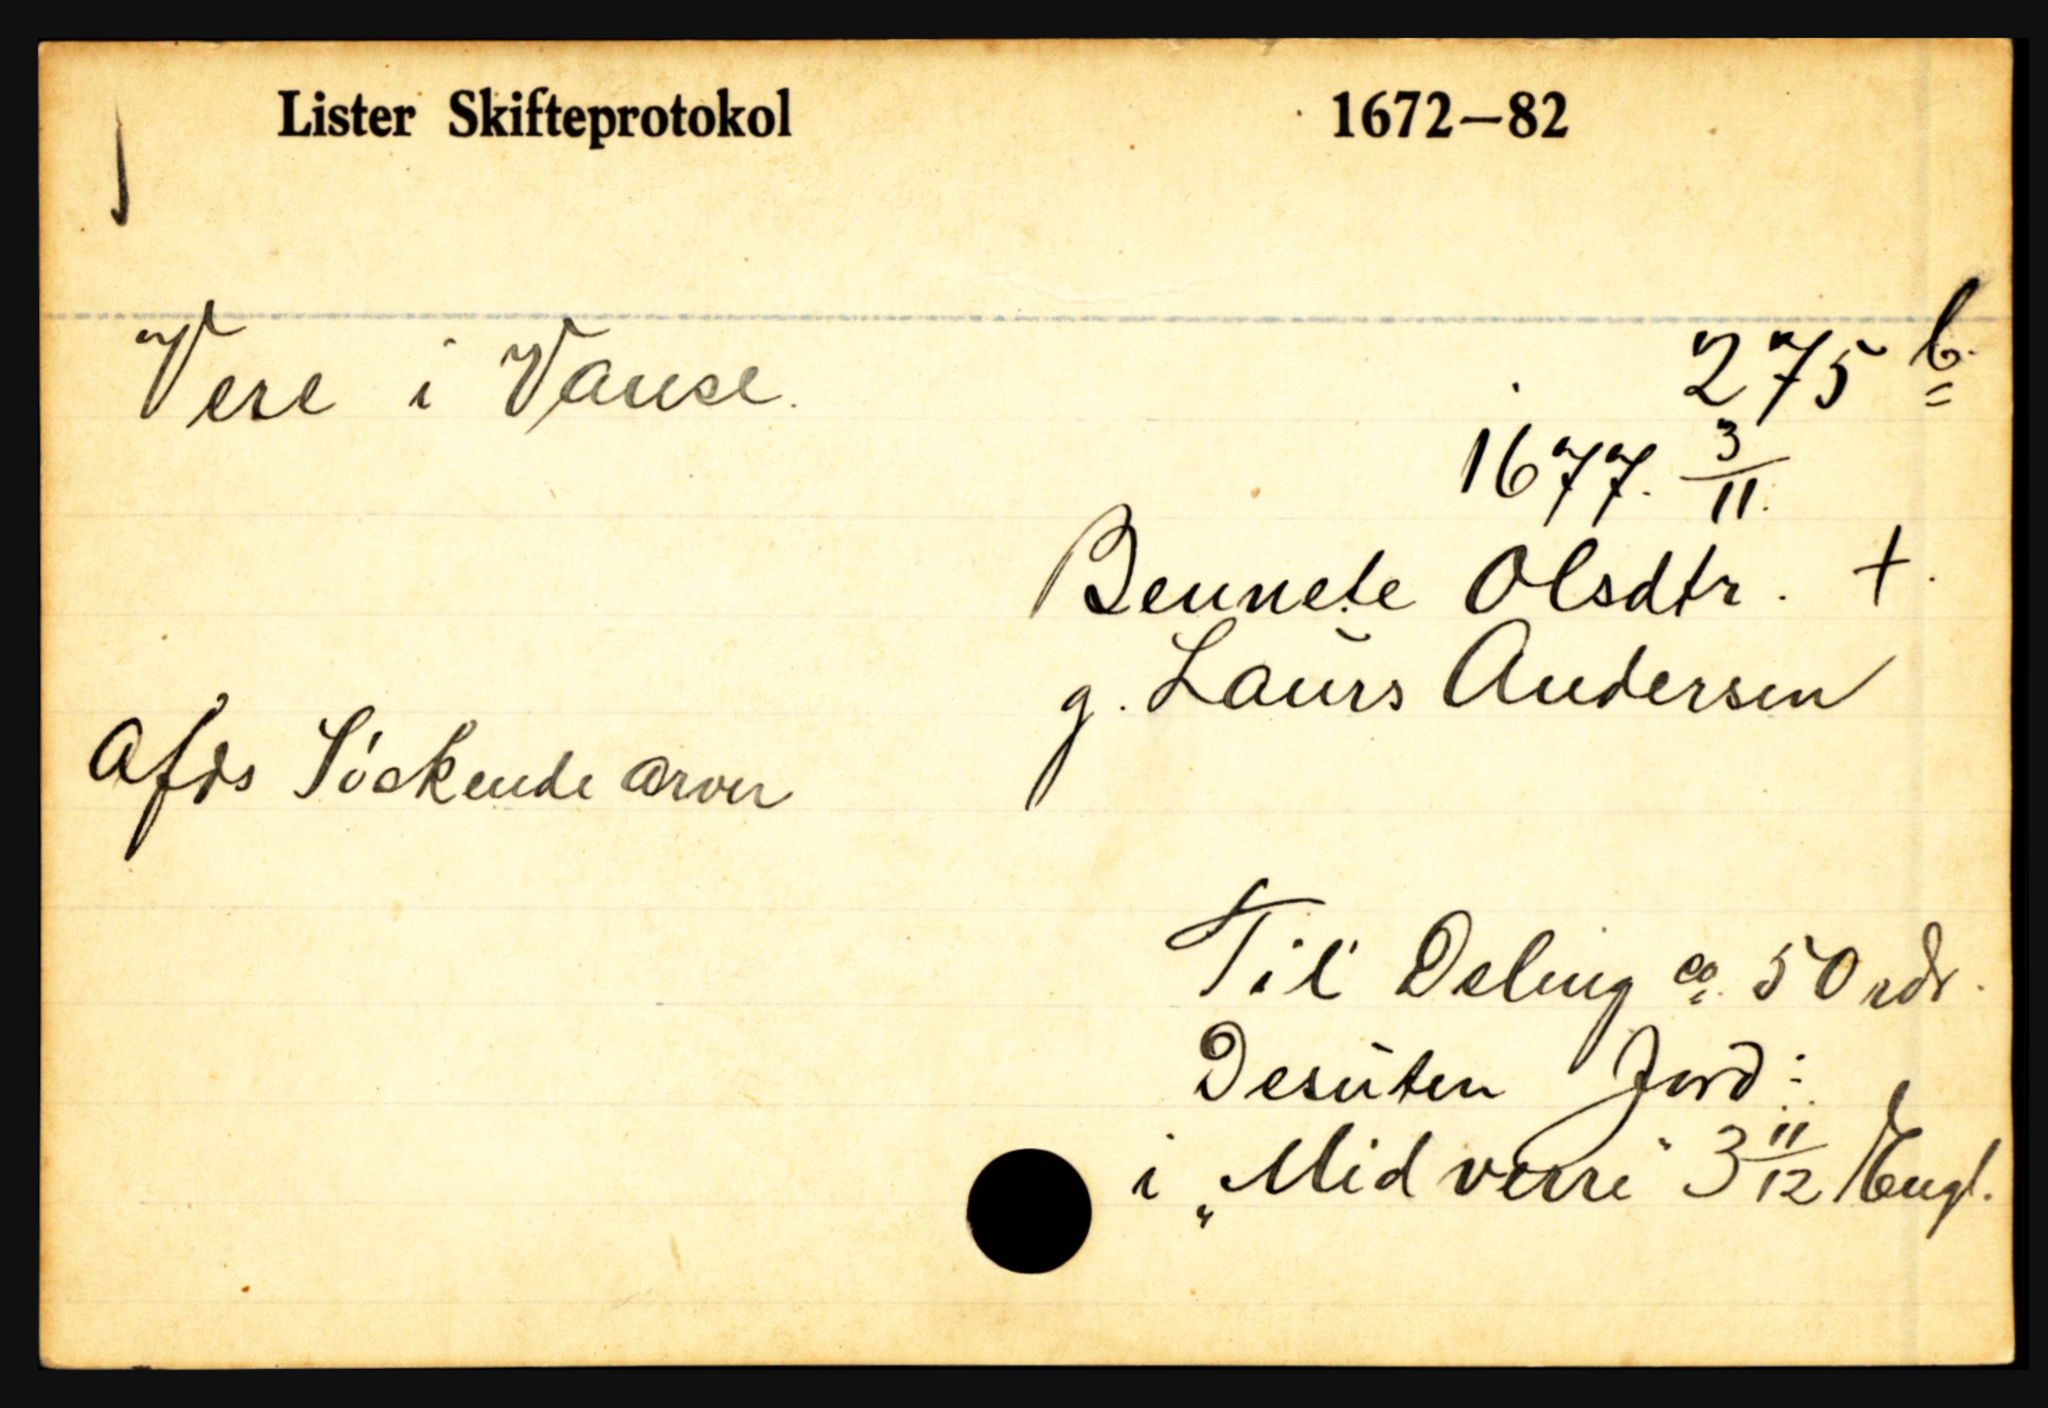 Lister Skifteprotokol 1672–82
Vere i Vanse. 275 b.
1677. 3/11.
Bennete Olsdtr. +.
g. Laurs Andersen
Afds Söskende arver
Til Deling ca. 50 rdr.
Desuten Jord:
i „Midverre" 3 11/12 Engl.